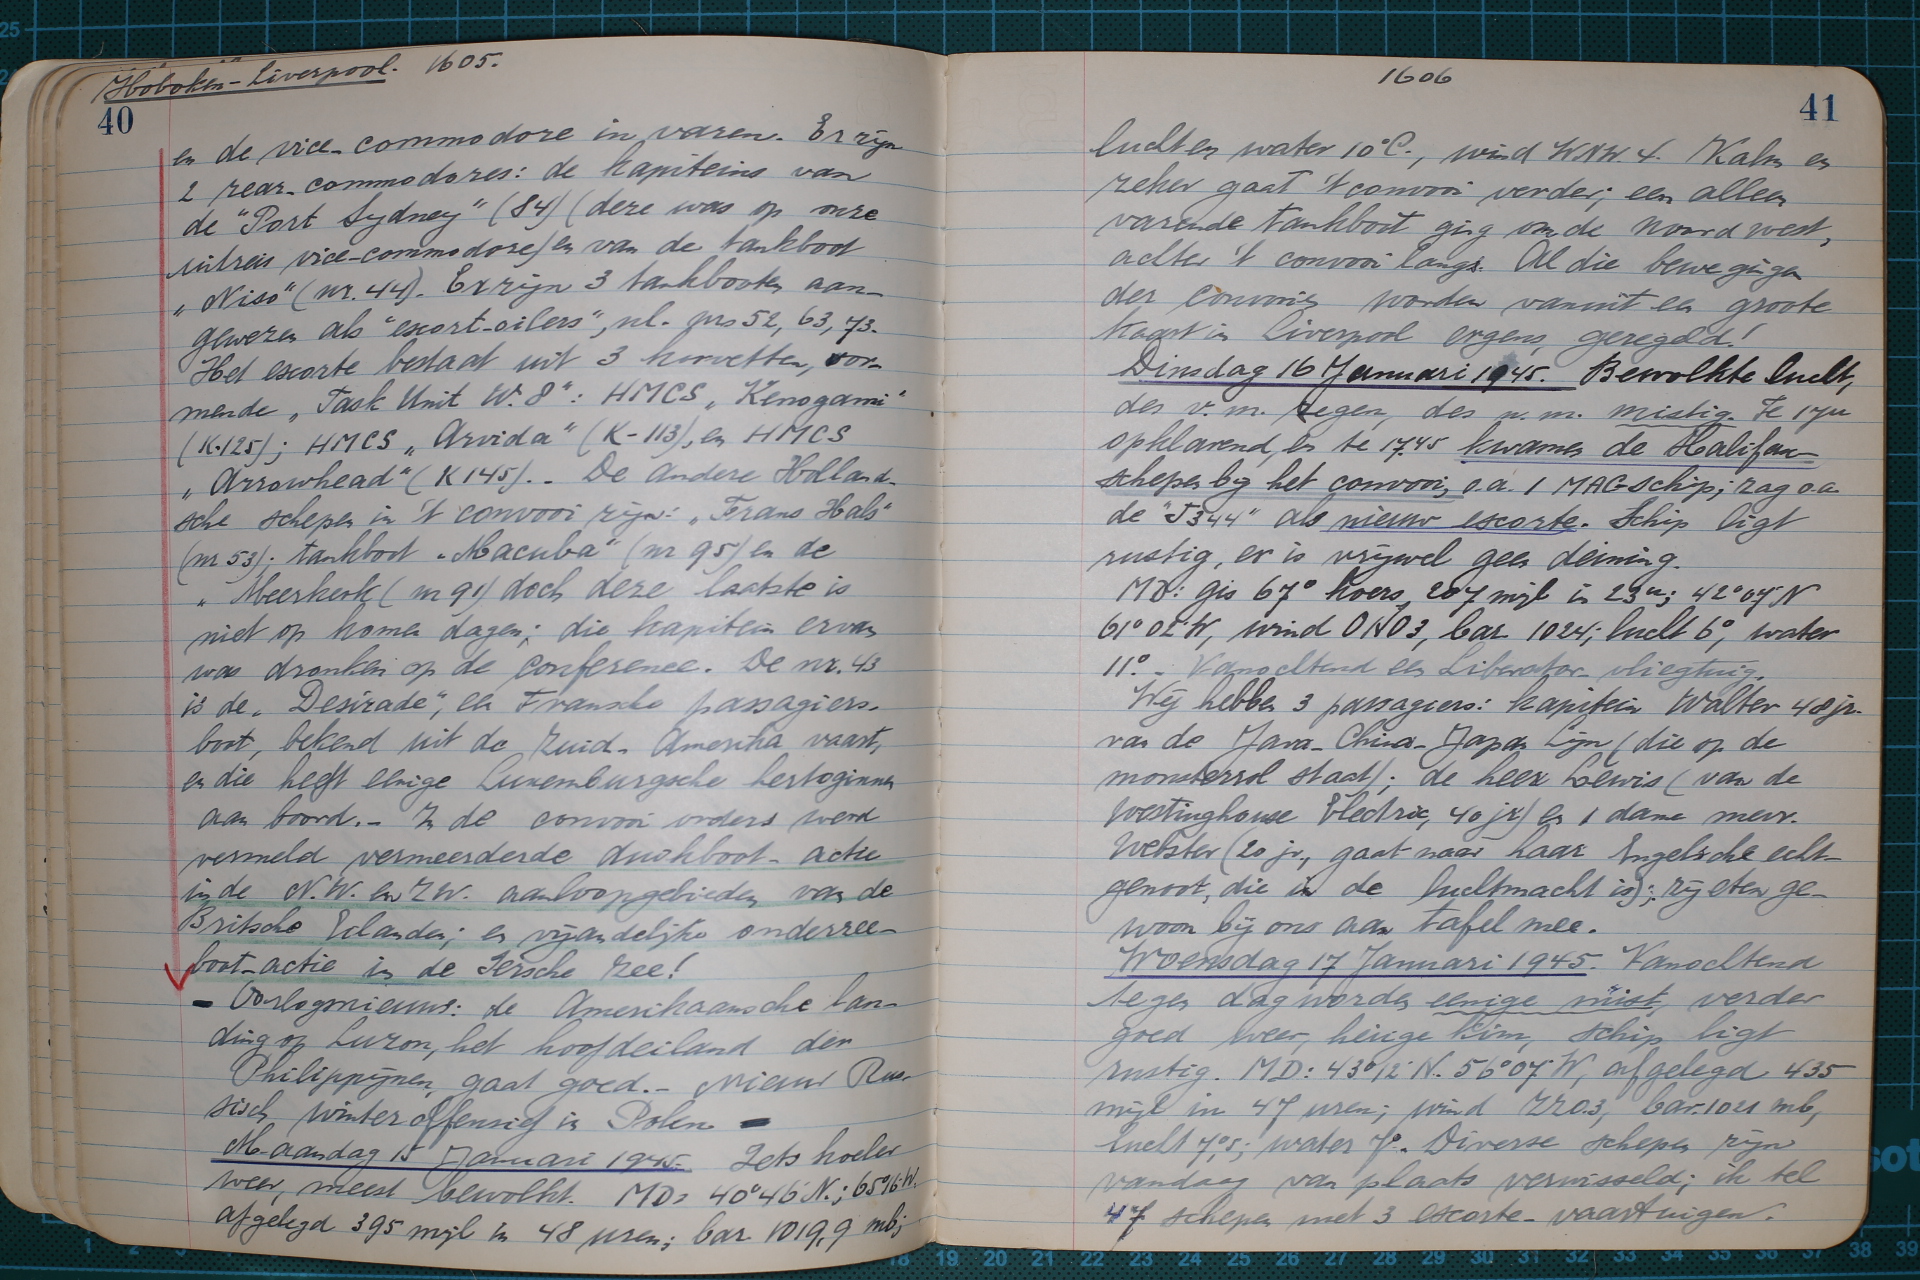 Hoboken-Liverpool. 1605.
40
en de vice-commodore in varen. Er zijn
2 rear-commodores: de kapiteins van
de "Port Sydney" (84) (deze was op onze
uitreis vice-commodore) en van de tankboot
„Niso" (nr. 44). Er zijn 3 tankboten aan-
gewezen als "escort-oilers", nl. nrs 52, 63, 73.
Het escorte bestaat uit 3 korvetten, vor-
mende „Task Unit W.8": HMCS „Kenogami"
(K-125); HMCS „Arvida" (K-113), en HMCS
„Arrowhead" (K 145). - De andere Holland-
sche schepen in 't convooi zijn: „Frans Hals"
(nr 53); tankboot „Macuba" (nr 95) en de
„Meerkerk (nr 91) doch deze laatste is
niet op komen dagen; die kapitein ervan
was dronken op de conference. De nr. 43
is de „Desirade", een Fransche passagiers-
boot, bekend uit de Zuid-Amerika vaart,
en die heeft eenige Luxemburgsche hertoginnen
aan boord. - In de convooi orders werd
vermeld vermeerderde duikboot-actie
in de N.W. en ZW. aanloopgebieden van de
Britsche Eilanden; en vijandelijke onderzee-
boot-actie in de Iersche Zee!
- Oorlogsnieuws: de Amerikaansche lan-
ding op Luzon, het hoofdeiland der
Philippijnen, gaat goed. - Nieuw Rus-
sisch winteroffensief in Polen -
Maandag 15 Januari 1945. Iets koeler
weer, meest bewolkt. MD: 40°46' N.; 65°16' W.
afgelegd 395 mijl in 48 uren; bar. 1019,9 mb;
1606
41
lucht en water 10°C., wind WNW 4. Kalm en
zeker gaat 't convooi verder; een alleen
varende tankboot ging om de Noordwest,
achter 't convooi langs. Al die bewegingen
der convooien worden vanuit een groote
kaart in Liverpool ergens, geregeld!
Dinsdag 16 Januari 1945. Bewolkte lucht,
des v.m. regen, des n.m. mistig. Te 17u
opklarend, en te 17.45 kwamen de Halifax-
schepen bij het convooi, o.a. 1 MAC schip; zag o.a.
de "J344" als nieuw escorte. Schip ligt
rustig, er is vrijwel geen deining.
MD: gis 67° koers, 207 mijl in 23u; 42°07' N
61°02' W, wind ONO3, bar. 1024; lucht 6°, water
11°. - Vanochtend een Liberator-vliegtuig.
Wij hebben 3 passagiers: kapitein Walter 48 jr.
van de Java-China-Japan Lijn (die op de
monsterrol staat); de heer Lewis (van de
Westinghouse Electric, 40 jr) en 1 dame mevr.
Webster (20 jr., gaat naar haar Engelsche echt-
genoot, die in de luchtmacht is); zij eten ge-
woon bij ons aan tafel mee.
Woensdag 17 Januari 1945. Vanochtend
tegen dagworden eenige mist, verder
goed weer, heiige kim, schip ligt
rustig. MD: 43°12' N. 56°07' W, afgelegd 435
mijl in 47 uren; wind ZZO.3, bar. 1021 mb,
lucht 7°,5; water 7°. Diverse schepen zijn
vandaag van plaats verwisseld; ik tel
47 schepen met 3 escorte-vaartuigen.